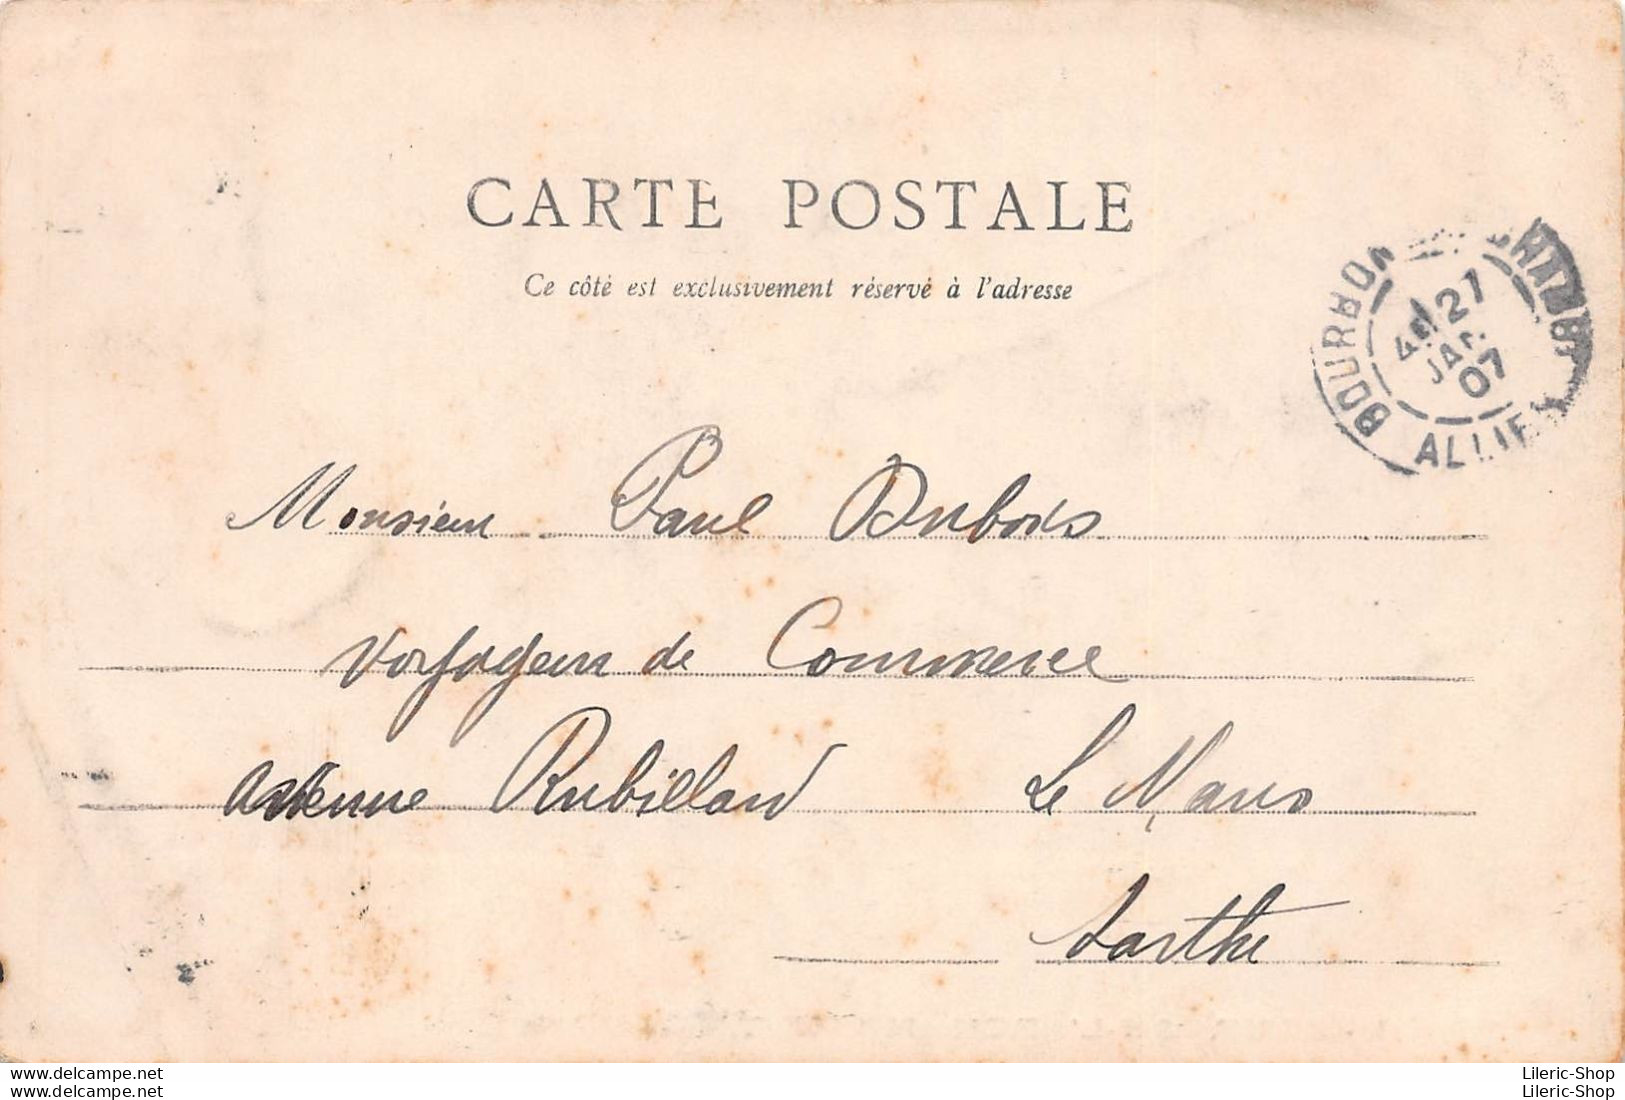 CARTE POSTALE
Ce côté est exclusivement réservé à l'adresse
BOURBON
ALLIER
27
JAN
07
Monsieur Paul Dubois
Voyageur de Commerce
Avenue Rubillard Le Mans
Sarthe
delcampe.net
delcampe.net
Lileric-Shop
Lileric-Shop